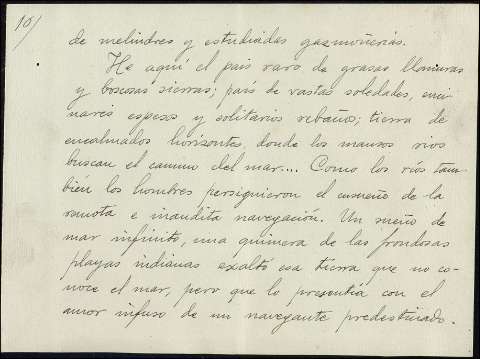 10/
de melindres y estudiadas gazmoñerías.
He aquí el país raro de grasas llanuras
y boscosas sierras; país de vastas soledades, enci-
nares espesos y solitarios rebaños; tierra de
encalmados horizontes, donde los mansos ríos
buscan el camino del mar.... Como los ríos tam-
bién los hombres persiguieron el ensueño de la
remota e inaudita navegación. Un sueño de
mar infinito, una quimera de las frondosas
playas indianas exaltó esa tierra que no co-
noce el mar, pero que lo presentía con el
amor infuso de un navegante predestinado.